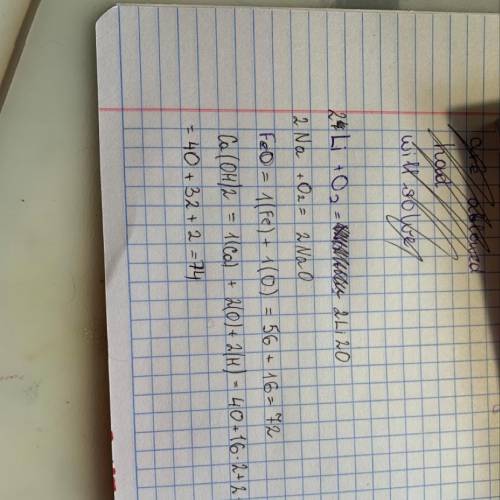 are allowed
Had
will solve
4Li + O2 = 2Li2O
2Na + O2 = 2NaO
FeO = 1(Fe) + 1(O) = 56 + 16 = 72
Ca(OH)2 = 1(Ca) + 2(O) + 2(H) = 40 + 16·2 + 2
= 40 + 32 + 2 = 74